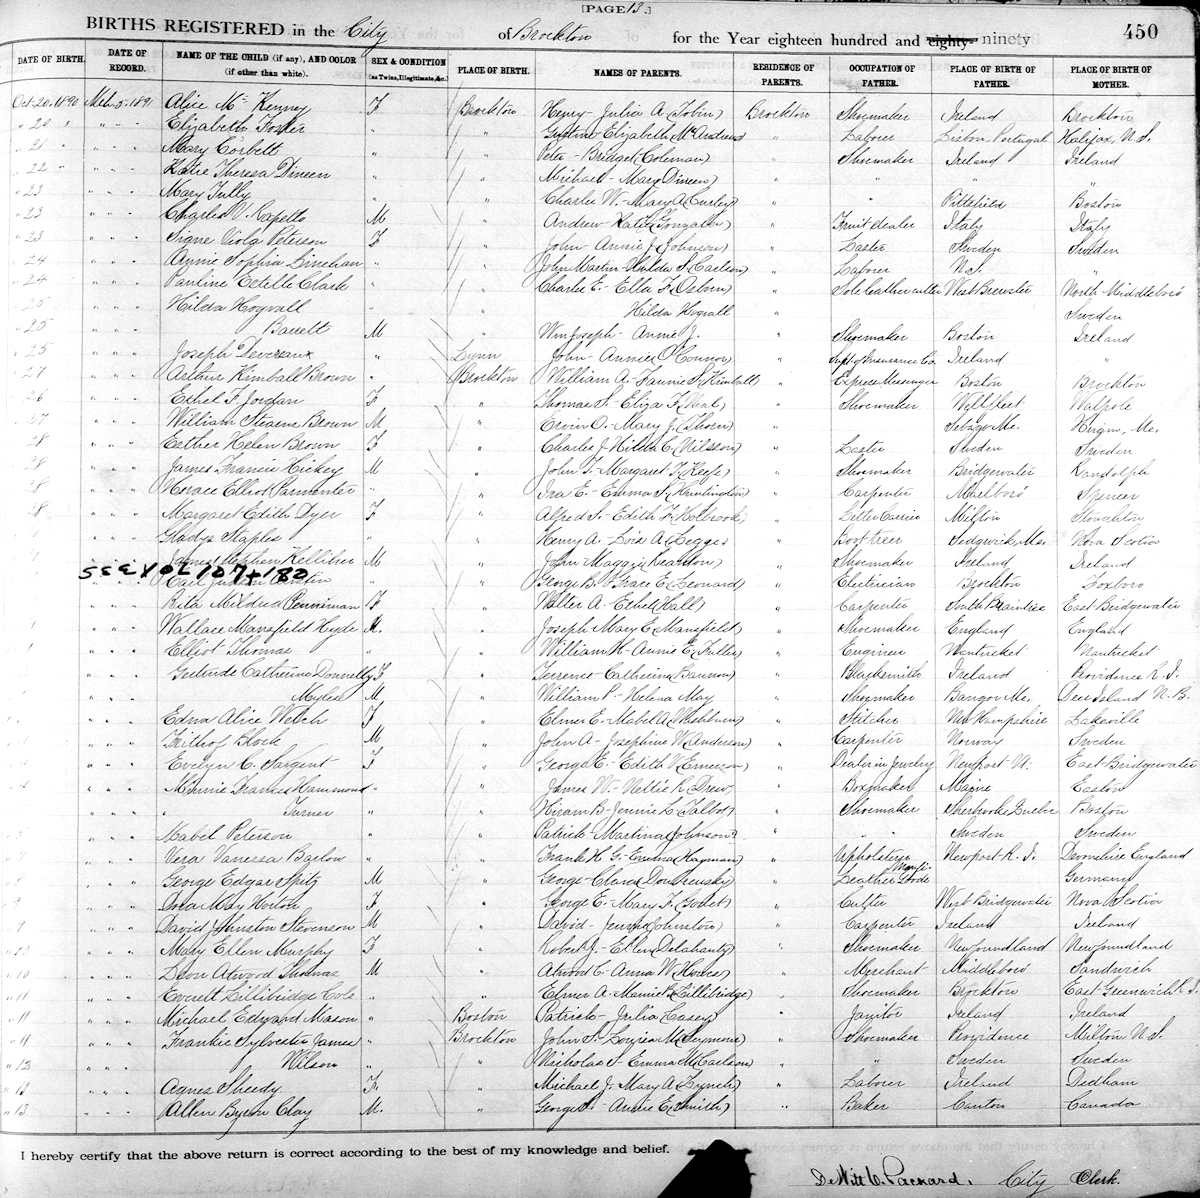 [PAGE 13.]
BIRTHS REGISTERED in the City of Brockton for the Year eighteen hundred and eighty- ninety 450
DATE OF BIRTH. DATE OF RECORD. NAME OF THE CHILD (if any), AND COLOR (if other than white). SEX & CONDITION (as Twins, Illegitimate, &c.) PLACE OF BIRTH. NAMES OF PARENTS. RESIDENCE OF PARENTS. OCCUPATION OF FATHER. PLACE OF BIRTH OF FATHER. PLACE OF BIRTH OF MOTHER.
Oct. 20, 1890 Mch 5, 1891 Alice Mc Kenney F Brockton Henry - Julia A. (Tobin) Brockton Shoemaker Ireland Brockton
" 20 " " " " Elizabeth Foster " " Elizabeth (McAndrews) " Laborer Lisbon, Portugal Halifax, N.S.
" 21 " " " " Mary Corbett " " Peter - Bridget (Coleman) " Shoemaker Ireland Ireland
" 22 " " " " Katie Theresa Dineen " " Michael - Mary (Dineen) " " " "
" 23 " " " Mary Tully " " Charles W. - Mary A. (Curley) " " Pittsfield Boston
" 23 " " " Charles V. Capello M " Andrew - Kate (Gonzalez) " Fruit dealer Italy Italy
" 23 " " " Signe Viola Peterson F " John - Annie J. (Johnson) " Laster Sweden Sweden
" 24 " " " Annie Sophia Linehan " " John Martin - Hulda S. (Carlson) " Laborer N.S. "
" 24 " " " Pauline Estelle Clark " " Charles E. - Ella F. (Osborn) " Sole leather cutter West Brewster North Middleboro
" 25 " " " Hilda Hogvall " " Hilda Hogvall Sweden
" 25 " " " Barrett M " Wm Joseph - Annie J. " Shoemaker Boston Ireland
" 25 " " " Joseph Devereaux " Lynn John - Annie (O'Connor) " Supt. of Insurance Co. Ireland "
" 27 " " " Arthur Kimball Brown " Brockton William A. - Fannie S. (Kimball) " Express Messenger Boston Brockton
" 26 " " " Ethel F. Jordan F " Thomas S. - Eliza F. (Neal) " Shoemaker Wellfleet Walpole
" 27 " " " William Stearns Brown M " Ervin O. - Mary J. (Thorn) " Sebago Me. Hiram, Me.
" 28 " " " Esther Helen Brown F " Charles J. - Hilda C. (Nilsson) " Laster Sweden Sweden
" 28 " " " James Francis Hickey M " John T. - Margaret F. (Keefe) " Shoemaker Bridgewater Randolph
" 28 " " " Horace Elliot Parmenter " " Ira E. - Emma S. (Huntington) " Carpenter Marlboro Spencer
" 28 " " " Margaret Edith Dyer F " Alfred S. - Edith F. (Holbrook) " Letter Carrier Milton Stoughton
" " " Gladys Staples " " Henry A. - Lois A. (Legge) " Boot treer Sedgwick, Me. Nova Scotia
" " " James Stephen Kelliher M " John Maggie (Reardon) " Shoemaker Ireland Ireland
SEE VOL 107 + 180
Austin " " George B. - Grace E. (Leonard) " Electrician Brockton Foxboro
" " " Rita Mildred Penniman F " Walter A. - Ethel (Hall) " Carpenter South Braintree East Bridgewater
" " " Wallace Mansfield Hyde M. " Joseph Mary E. (Mansfield) " Shoemaker England England
" " " Elliot Thomas " " William H. - Annie E. (Fuller) " Engineer Nantucket Nantucket
" " " Gertrude Catherine Donnelly F " Terrence - Catherine (Bannon) " Blacksmith Ireland Providence R.I.
" " " Myles M " William P. - Helena May " Shoemaker Bangor Me. Deer Island N.B.
" " " Edna Alice Welch F " Elmer E. - Mabel A. (Washburn) " Stitcher New Hampshire Lakeville
" " " Frithof Block M " John A. - Josephine W. (Anderson) " Carpenter Norway Sweden
" " " Evelyn C. Sargent F " George E. - Edith V. (Emerson) " Dealer in Jewelry Newport East Bridgewater
" " " Minnie Frances Hammond " " James W. - Nellie R. (Drew) " Boxmaker Maine Easton
" " " Turner " " Hiram B. - Jennie L. (Talbot) " Shoemaker Sherbrooke Quebec Boston
" 5 " " " Mabel Peterson " " Patrick - Martina (Johnson) " " Sweden Sweden
" 7 " " " Vera Vanessa Barlow " " Frank H. G. - Emma (Hayman) " Upholsterer Newport R.I. Devonshire England
" 8 " " " George Edgar Spitz M " George - Clara " Manf. Leather Goods Germany
" 9 " " " May Horton F " George E. - Mary F. " Cutter West Bridgewater Nova Scotia
" 9 " " " David Johnston Stevenson M " David - Jennie (Johnston) " Carpenter Ireland Ireland
" 10 " " " Mary Ellen Murphy F " Robert J. - Ellen (Delahanty) " Shoemaker Newfoundland Newfoundland
" 10 " " " Deon Atwood Thomas M " Atwood C. - Anna W. (Howes) " Merchant Middleboro Sandwich
" 11 " " " Everett Lillibridge Cole " " Elmer A. - Mamie P. (Lillibridge) " Shoemaker Brockton East Greenwich R.I.
" 11 " " " Michael Edward Mason " Boston Patrick - Julia (Casey) " Janitor Ireland Ireland
" 11 " " " Frankie Sylvester James " Brockton John S. - Louisa M. (Seymore) " Shoemaker Providence Milton, N.S.
" 12 " " " Wilson " " Nicholas S. - Emma M. (Carlson) " " Sweden Sweden
" 13 " " " Agnes Sheedy F. " Michael J. Mary A. (Lynch) " Laborer Ireland Dedham
" 13 " " " Allen Byron Clay M. " George S. - Annie E. (Smith) " Baker Canton Canada
I hereby certify that the above return is correct according to the best of my knowledge and belief.
DeWitt C. Packard, City Clerk.